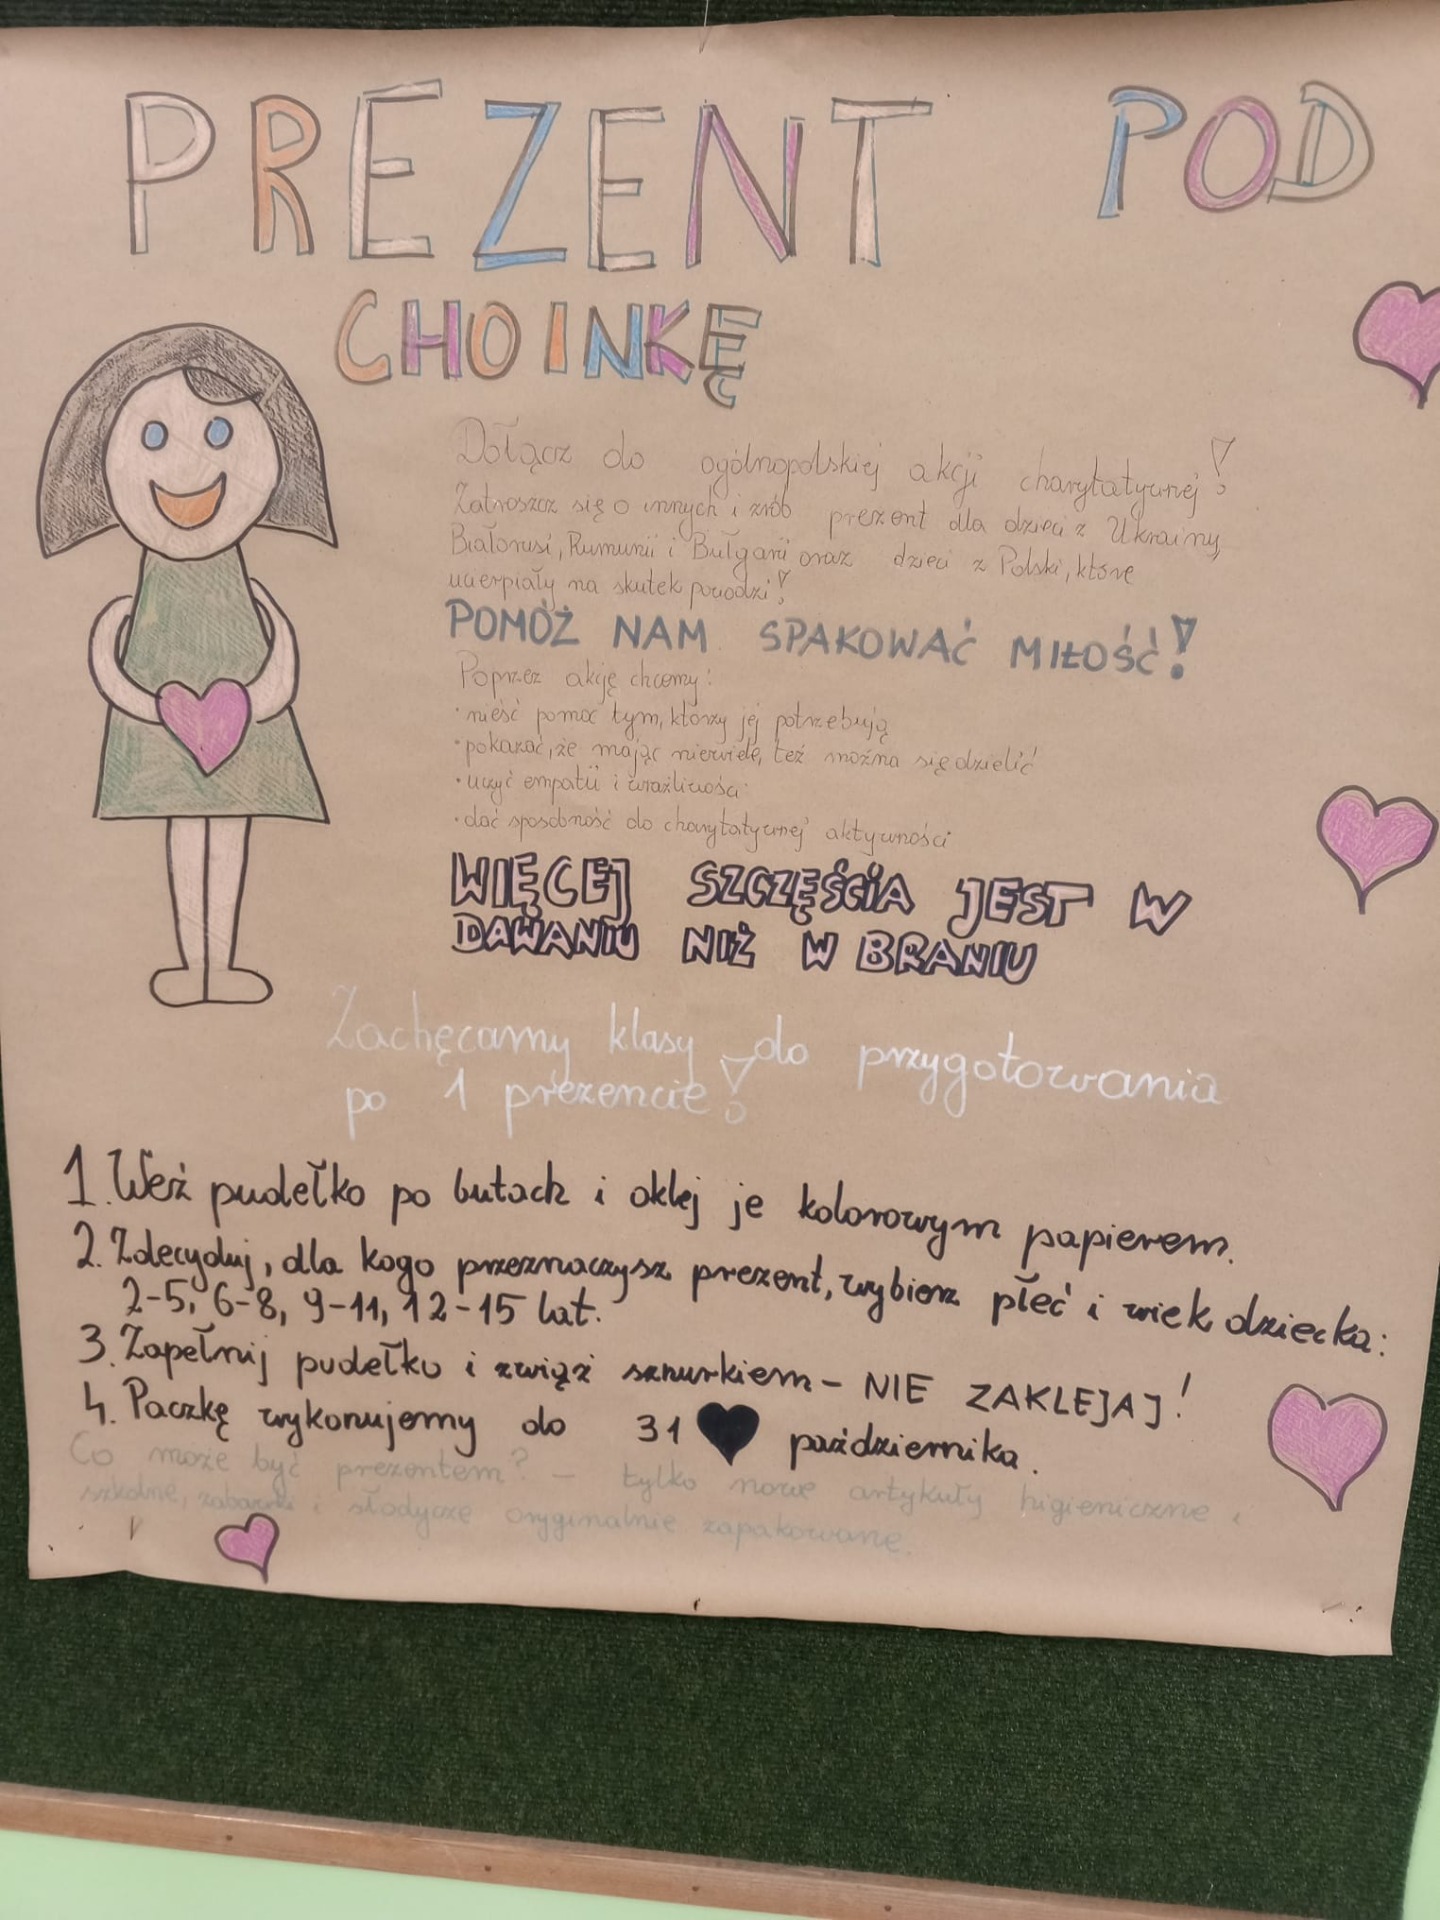 PREZENT POD
CHOINKĘ
Dołącz do ogólnopolskiej akcji charytatywnej!
Zatroszcz się o innych i zrób prezent dla dzieci z Ukrainy,
Białorusi, Rumunii i Bułgarii oraz dzieci z Polski, które
ucierpiały na skutek powodzi!
POMÓŻ NAM SPAKOWAĆ MIŁOŚĆ!
Poprzez akcję chcemy:
• nieść pomoc tym, którzy jej potrzebują
• pokazać, że mając niewiele, też można się dzielić
• uczyć empatii i wrażliwości
• dać sposobność do charytatywnej aktywności
WIĘCEJ SZCZĘŚCIA JEST W
DAWANIU NIŻ W BRANIU
Zachęcamy klasy do przygotowania
po 1 prezencie!
1. Weź pudełko po butach i oklej je kolorowym papierem.
2. Zdecyduj, dla kogo przeznaczysz prezent, wybierz płeć i wiek dziecka:
2-5, 6-8, 9-11, 12-15 lat.
3. Zapełnij pudełko i zwiąż sznurkiem - NIE ZAKLEJAJ!
4. Paczkę wykonujemy do 31 października.
Co może być prezentem? - tylko nowe artykuły higieniczne,
szkolne, zabawki i słodycze oryginalnie zapakowane.